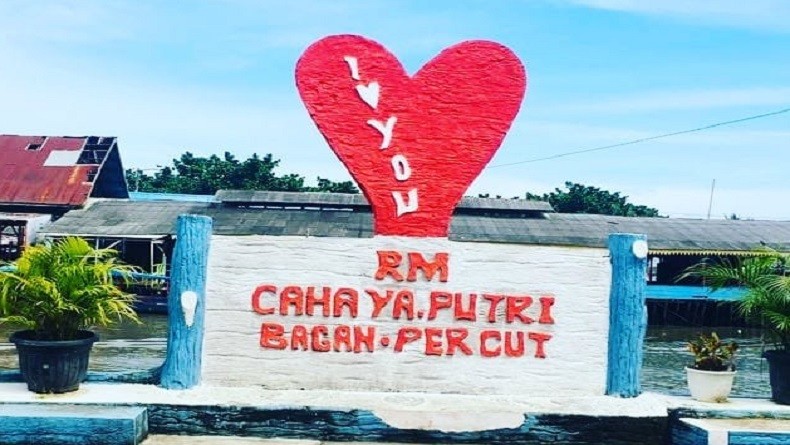 I ♥ YOU
RM
CAHAYA.PUTRI
BAGAN•PERCUT